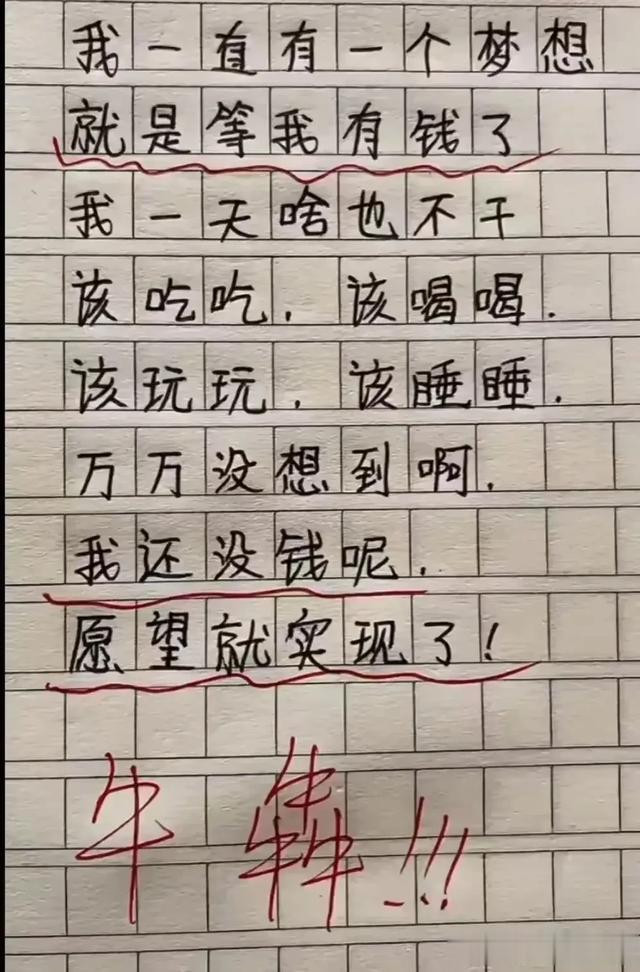 我一直有一个梦想
就是等我有钱了
我一天啥也不干
该吃吃，该喝喝.
该玩玩，该睡睡.
万万没想到啊.
我还没钱呢.
愿望就实现了！
牛犇!!!